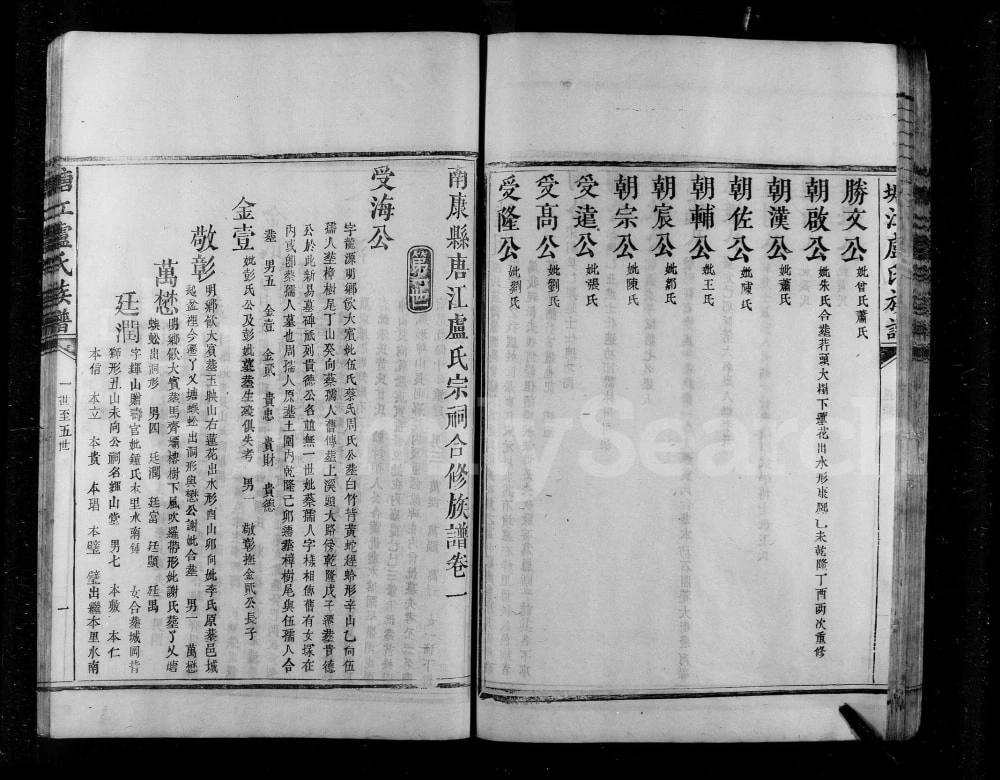 勝文公 妣曾氏蕭氏
朝啟公 妣朱氏合塟荐頭大塘下蓮花出水形康熙乙未乾隆丁酉兩次重修
朝漢公 妣蕭氏
朝佐公 妣陳氏
朝輔公 妣王氏
朝宸公 妣鄒氏
朝宗公 妣陳氏
受遣公 妣張氏
受髙公 妣劉氏
受隆公 妣劉氏
南康縣唐江盧氏宗祠合修族譜卷一
受海公
字龍源明鄉飲大賓妣伍氏蔡氏周氏公塟白竹背黃蛇趕蛤形辛山乙向伍
孺人塟樟樹尾丁山癸向蔡孺人舊傳塟上溪迳大路傍乾隆戊子遷塟貴德
公於此斬易墓碑祇列貴德公名並無一世妣蔡孺人字樣相傳舊有女塚在
内或卽蔡孺人墓也周孺人原塟土圍内乾隆己卯遷塟樟樹尾與伍孺人合
塟 男五 金壹 金貳 貴忠 貴財 貴德
金壹 妣彭氏公及彭妣墓塟生歿俱失考 男一 敬彰撫金貳公長子
敬彰 明鄉飲大賓塟玉映山右蓮花出水形酉山卯向妣李氏原塟邑城
男一 萬懋
萬懋 明鄉飲大賓塟馬齊壩樓樹下風吹羅帶形妣謝氏塟丫乂塘
蜈蚣出洞形 男四 廷潤 廷富 廷顯 廷禺
廷潤 字鐸山贈壽官妣鍾氏本里水南鍾 女合塟城岡背
獅形丑山未向公祠名鐸山堂 男七 本敷 本仁
本信 本立 本貴 本琩 本璧 璧出繼本里水南
塘江盧氏族譜
一世至五世
一